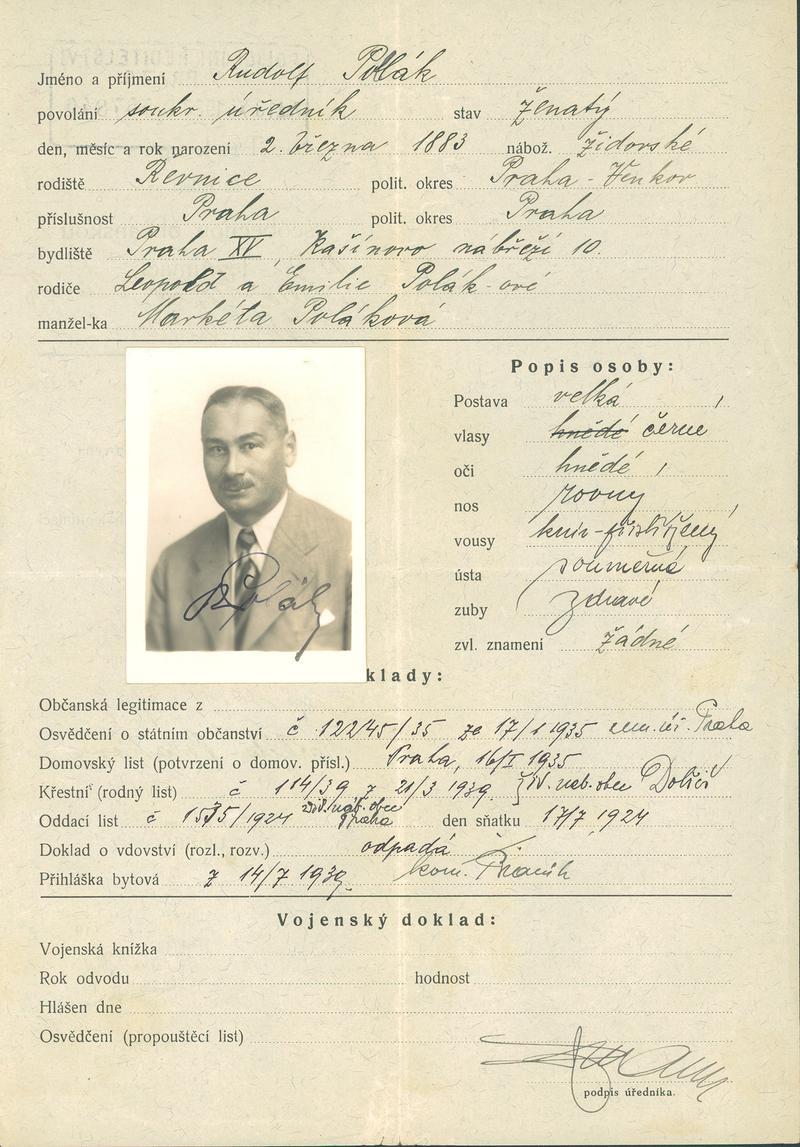 Jméno a příjmení Rudolf Pollák
povolání soukr. úředník stav ženatý
den, měsíc a rok narození 2. března 1883 nábož. židovské
rodiště Řevnice polit. okres Praha - Venkov
příslušnost Praha polit. okres Praha
bydliště Praha XV, Kašínovo nábřeží 10.
rodiče Leopold a Emilie Polák-ovi
manžel-ka Markéta Poláková
Popis osoby:
Postava velká,
vlasy hnědé černé
oči hnědé,
nos rovný,
vousy knír-přistřižený
ústa souměrná
zuby zdravé
zvl. znamení žádné
Polák
klady:
Občanská legitimace z
Osvědčení o státním občanství č 12245/35 ze 17/1 1935 zem. úř. Praha
Domovský list (potvrzení o domov. přísl.) Praha, 16/I 1935
Křestní (rodný list) č 114/39 z 21/3 1939 žid. náb. obec
Oddací list č 1535/1924 žid. náb. obec Praha den sňatku 17/7 1924
Doklad o vdovství (rozl., rozv.) odpadá
Přihláška bytová z 14/7 1939 kom.
Vojenský doklad:
Vojenská knížka
Rok odvodu hodnost
Hlášen dne
Osvědčení (propouštěcí list)
podpis úředníka.